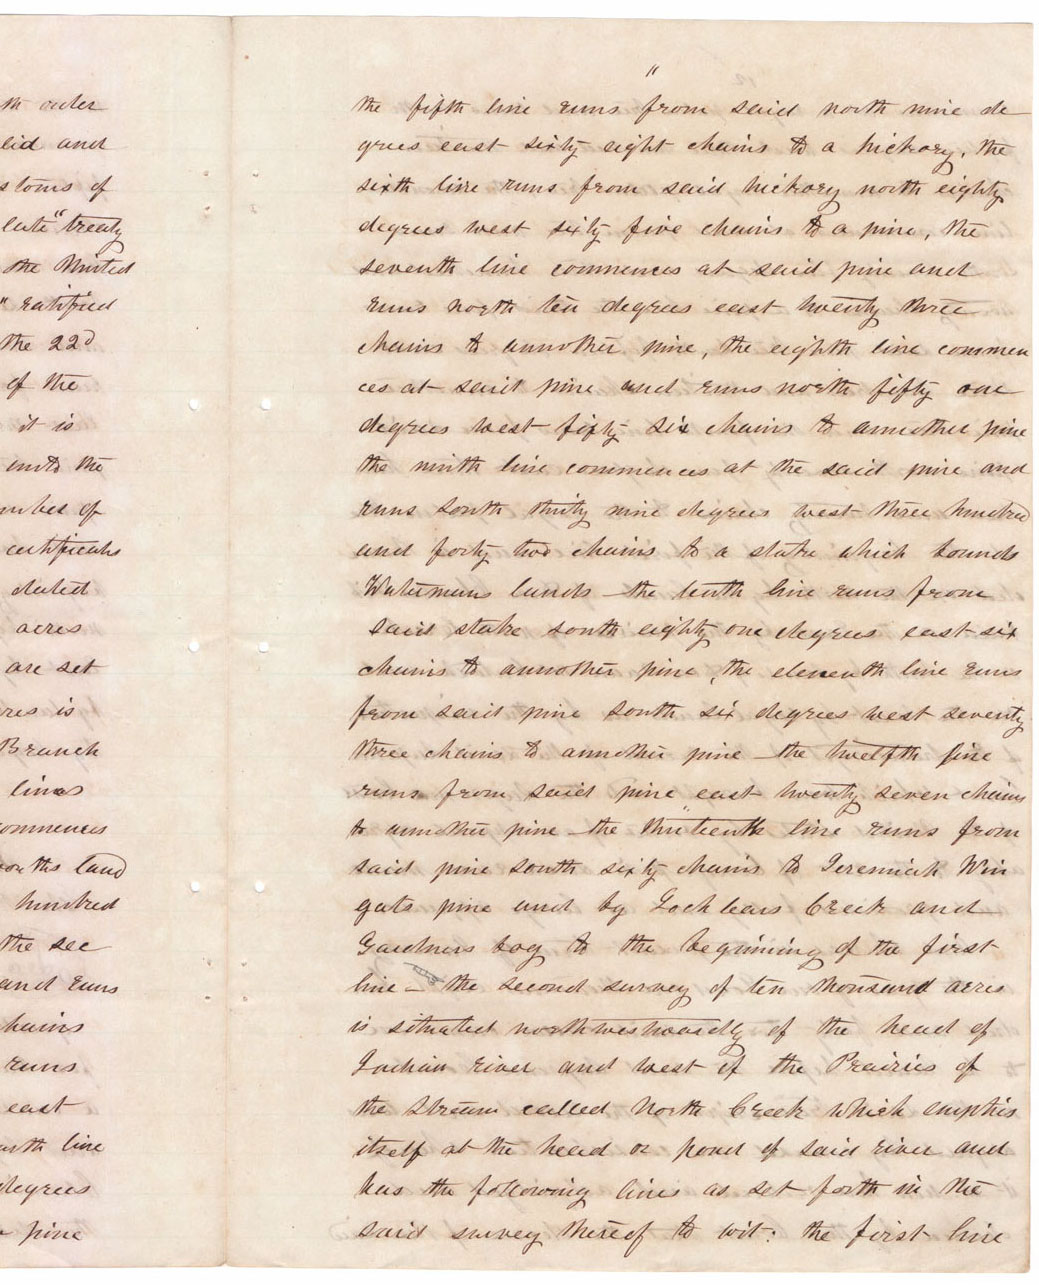 th order
lid and
stoms of
late "treaty
the United
" ratified
the 22d
of the
it is
unto the
mber of
certificate
dated
acres
are set
res is
Branch
lines
commences
on the land
hundred
the sec
and runs
hains
runs
east
urth line
degrees
pine
"
the fifth line runs from said north nine de
grees east sixty eight chains to a hickory, the
sixth line runs from said hickory north eighty
degrees west sixty five chains to a pine, the
seventh line commences at said pine and
runs north ten degrees east twenty three
chains to annother pine, the eighth line commen
ces at said pine and runs north fifty one
degrees west fifty six chains to annother pine
the ninth line commences at the said pine and
runs South thirty nine degrees west three hundred
and forty two chains to a stake which bounds
Watermans lands – the tenth line runs from
said stake south eighty one degrees east six
chains to annother pine, the eleventh line runs
from said pine south six degrees west seventy
three chains to annother pine – the twelfth line
runs from said pine east twenty seven chains
to annother pine – the thirteenth line runs from
said pine south sixty chains to Jeremiah Win
gats pine and by Lochlears Creek and
Gardners bog to the beginning of the first
line – the second survey of ten thousand acres
is situated northwestwardly of the head of
Indian river and west of the Prairies of
the Stream called North Creek which empties
itself at the head or pond of said river and
has the following lines as set forth in the
said survey thereof to wit: the first line